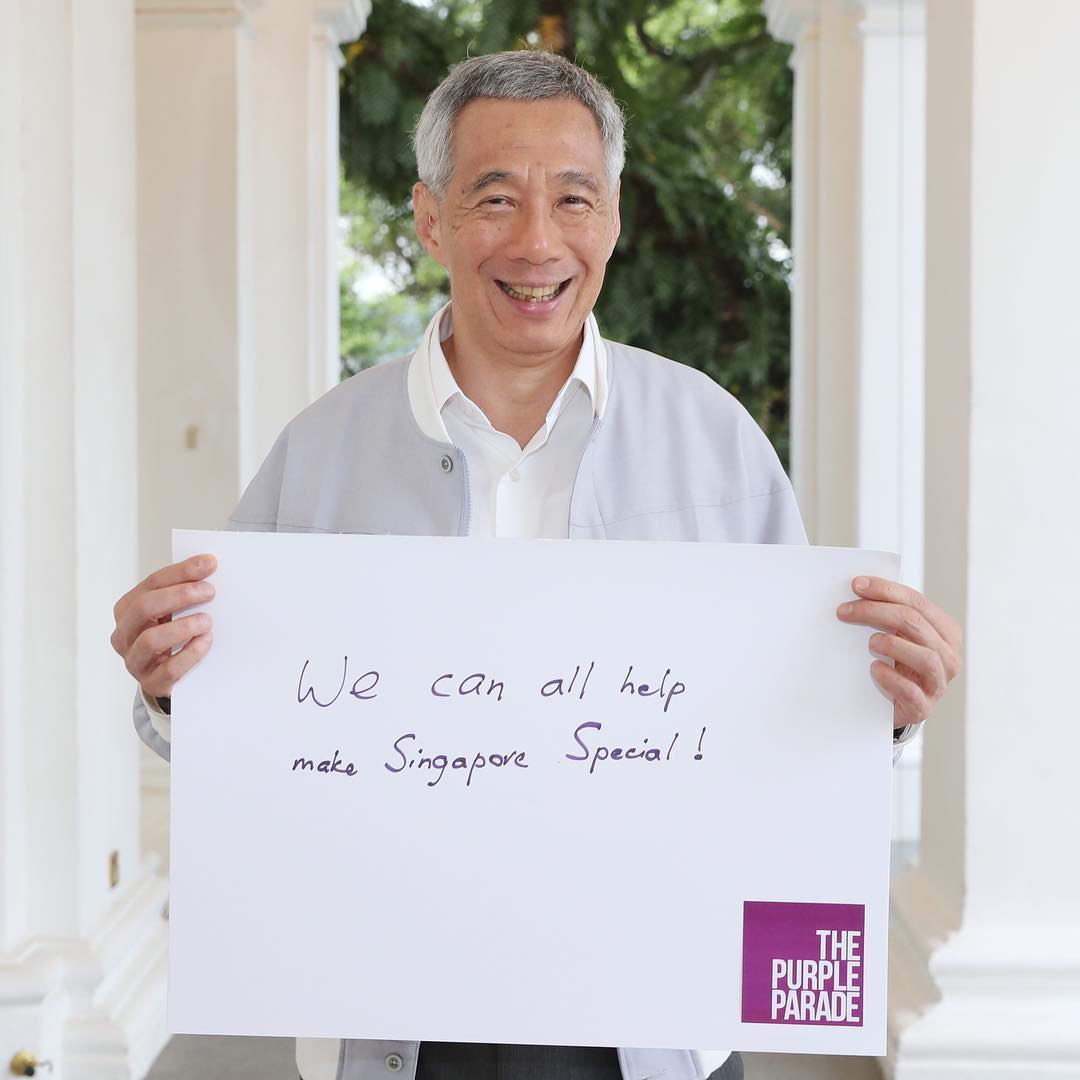 We can all help
make Singapore Special!
THE
PURPLE
PARADE